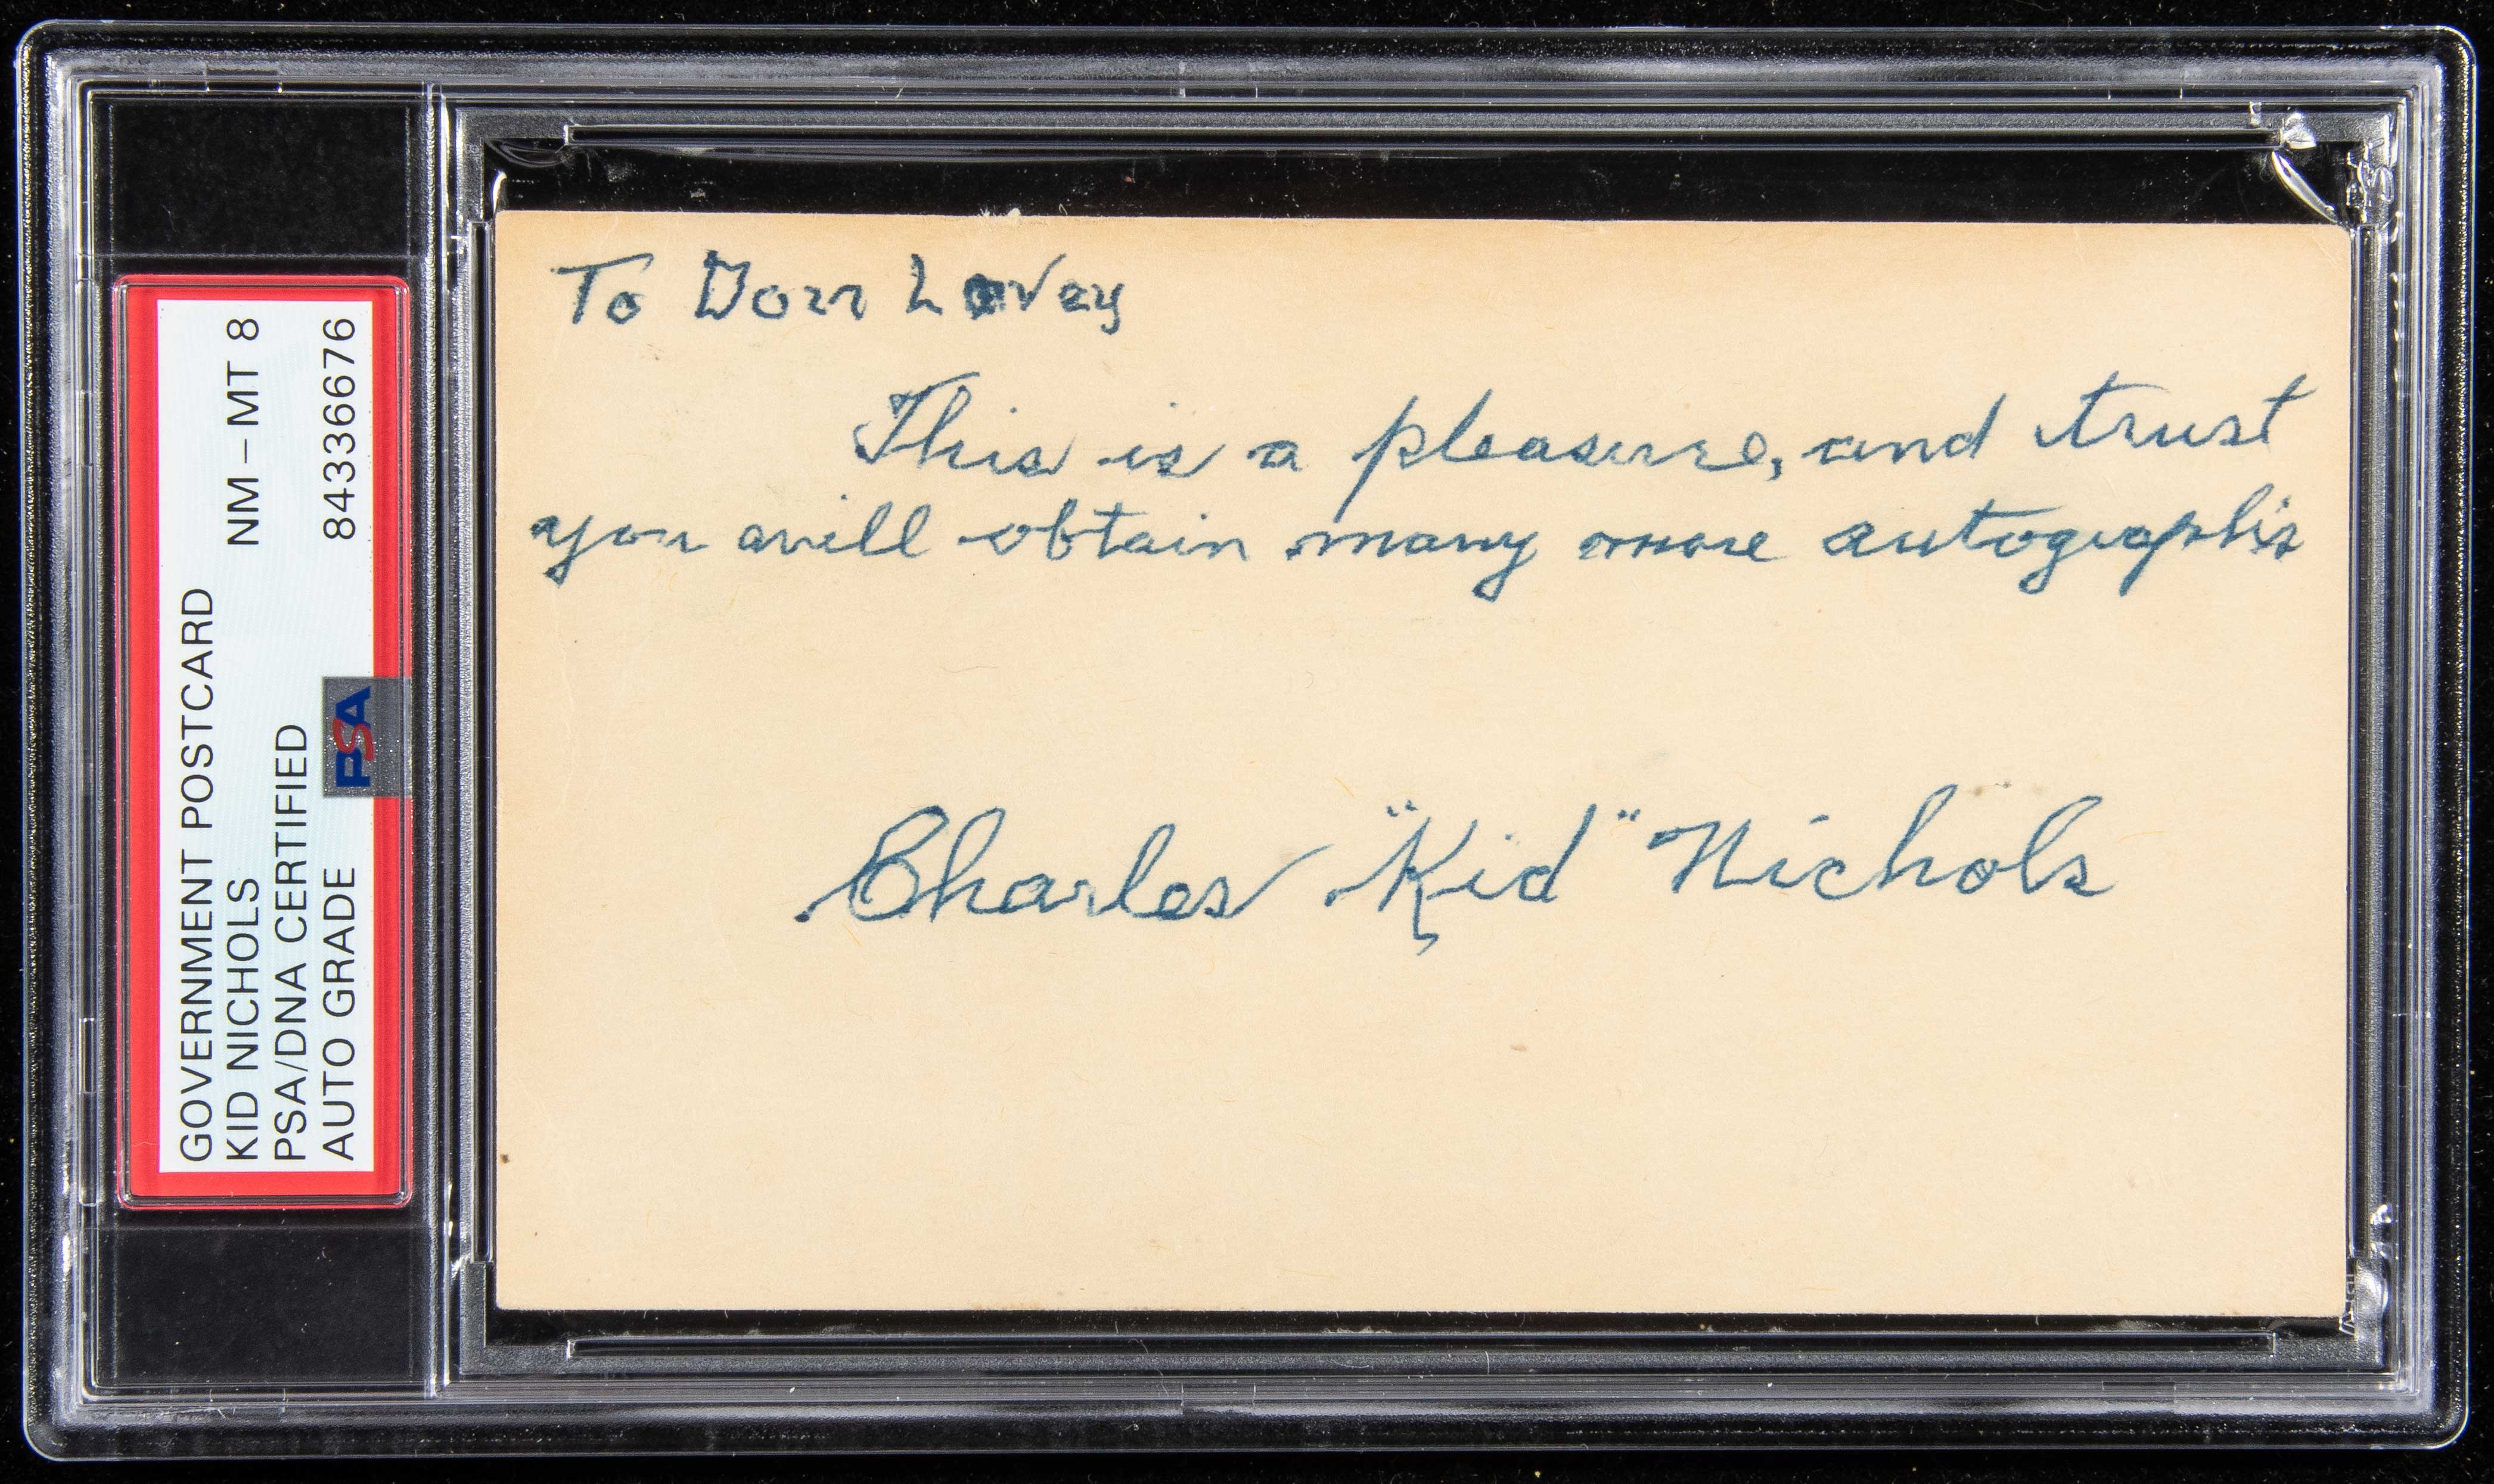 GOVERNMENT POSTCARD
KID NICHOLS NM-MT 8
PSA/DNA CERTIFIED
AUTO GRADE 84336676
PSA
To Don Lovay
This is a pleasure, and trust
you will obtain many more autographs
Charles "Kid" Nichols